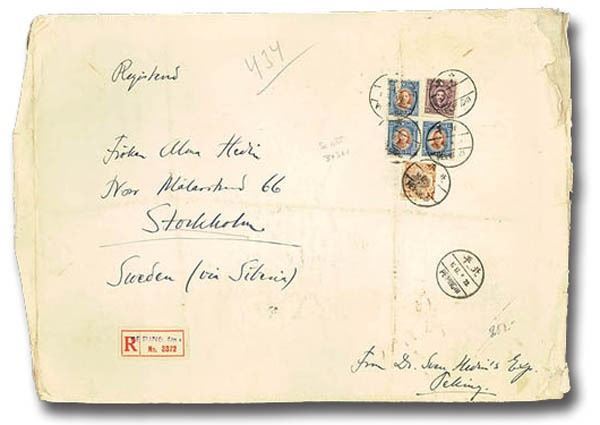 434
Registered
Fröken Alma Hedin
Norr Mälarstrand 66
Stockholm
Sweden (via Siberia)
R PEIPING
No. 3372
From Dr. Sven Hedin's Exp.
Peking.